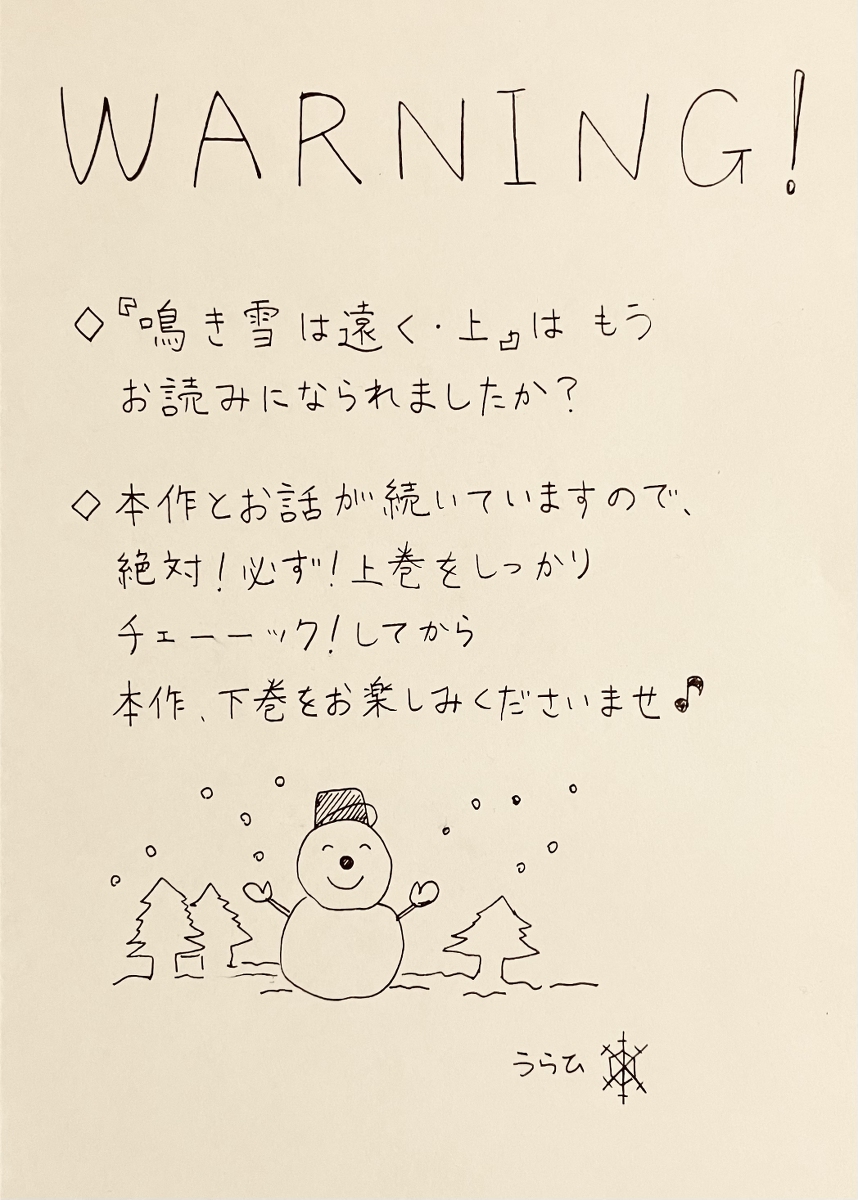 WARNING!
◇『鳴き雪は遠く・上』は もう
お読みになられましたか?
◇本作とお話が続いていますので、
絶対!必ず!上巻をしっかり
チェーーック!してから
本作、下巻をお楽しみくださいませ♪
うらひ